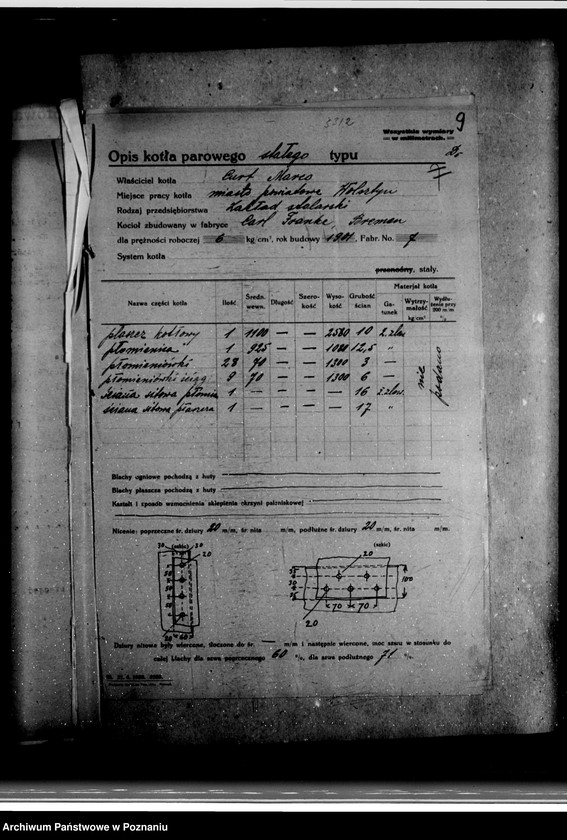 5312
9
Wszystkie wymiary
w milimetrach.
Opis kotła parowego stałego typu
Właściciel kotła Curt Marco
Miejsce pracy kotła miasto powiatowe Wolsztyn
Rodzaj przedsiębiorstwa Zakład stolarski
Kocioł zbudowany w fabryce Carl Franke, Bremen
dla prężności roboczej 6 kg cm², rok budowy 1901, Fabr. No. 7
System kotła
przenośny, stały.
Nazwa części kotła Ilość. Średn. wewn. Długość Szerokość Wysokość Grubość ścian. Materjał kotła Gatunek Wytrzymałość kg/cm² Wydłużenie przy 200 m/m %
płaszcz kotłowy 1 1100 — — 2580 10 ż. zlew.
płomienica 1 925 — — 1080 12,5 "
płomieniówki 28 70 — — 1300 3 —
płomieniówki ściąg 9 70 — — 1300 6 —
ściana sitowa płomie 1 — — — — 16 ż. zlew.
ściana sitowa płaszcza 1 — — — 17 "
nie podano
Blachy ogniowe pochodzą z huty
Blachy płaszcza pochodzą z huty
Kształt i sposób wzmocnienia sklepienia skrzyni paleniskowej
Nicenie: poprzeczne śr. dziury 20 m/m, śr. nita m/m, podłużne śr. dziury 20 m/m, śr. nita m/m.
(szkic) (szkic)
30 30
20
20
50
60
20
100
70 70
20
Dziury nitowe były wiercone, tłoczone do śr. — m/m i następnie wiercone, moc szwu w stosunku do
całej blachy dla szwu poprzecznego 60 %, dla szwu podłużnego 71 %.
Archiwum Państwowe w Poznaniu